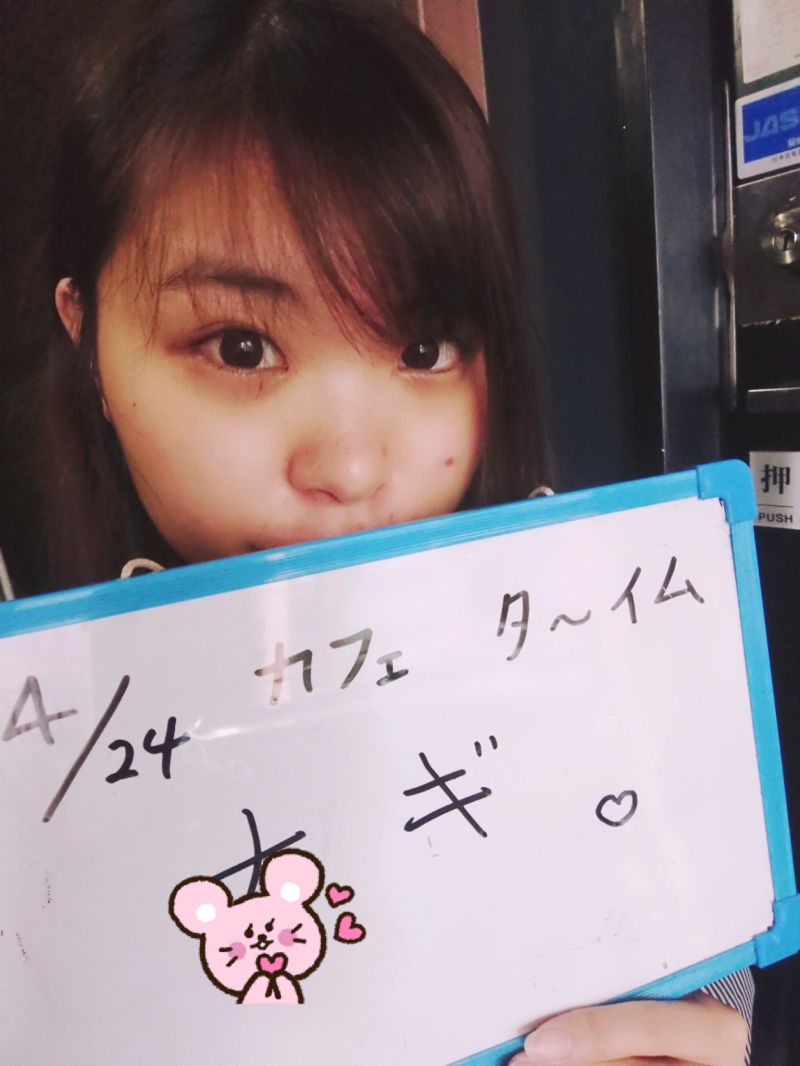 4/24 カフェ タ～イム
ナギ♡
JAS
押
PUSH